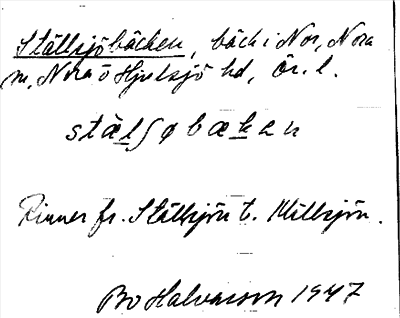 Ställsjöbäcken, bäck i Nor, Nora
sn, Nora o Hjulsjö hd, Ör. l.
stälʃøbækan
Rinner fr. Ställsjön t. Millsjön.
Bo Halvarson 1947